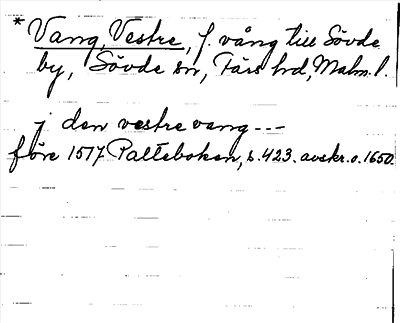 * Vang, Vestre, f. vång till Sövde
by, Sövde sn, Färs hd, Malm. l.
j den vestre vang ---
före 1517 Palteboken, s. 423. avskr. o. 1650.